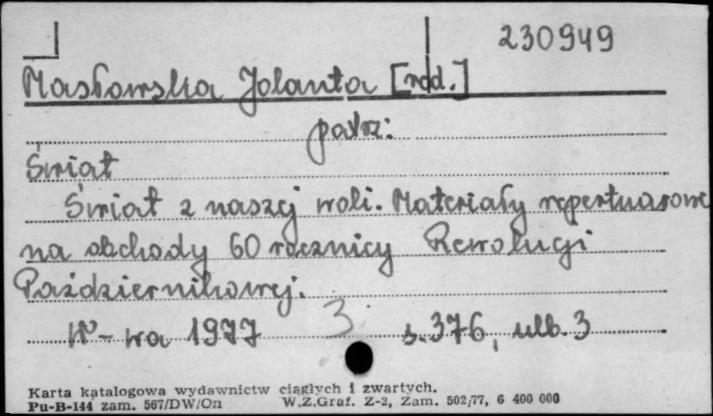 230949
Masłowska Jolanta [red.]
patrz:
Świat
Świat z naszej woli. Materiały repertuarowe
na obchody 60 rocznicy Rewolucji
Październikowej.
W-wa 1977 3 s. 376, nlb. 3
Karta katalogowa wydawnictw ciągłych i zwartych.
Pu-B-144 zam. 567/DW/On W.Z.Graf. Z-2, Zam. 502/77, 6 400 000